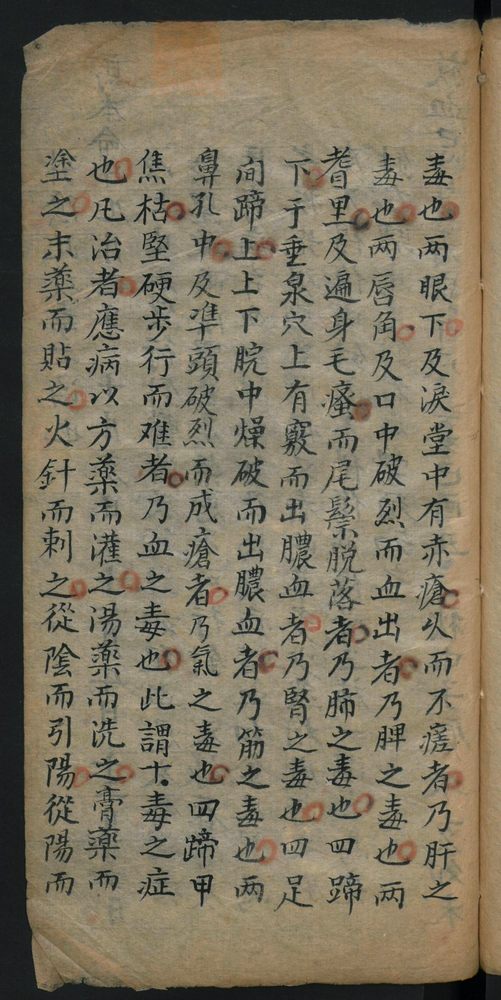 毒也两眼下及淚堂中有赤瘡久而不瘥者乃肝之
毒也两唇角及口中破烈而血出者乃脾之毒也两
耆里及遍身毛瘙而尾鬃脱落者乃肺之毒也四蹄
下于垂泉穴上有竅而出膿血者乃腎之毒也四足
间蹄上上下脘中燥破而出膿血者乃筋之毒也两
鼻孔中及凖頭破烈而成瘡者乃氣之毒也四蹄甲
焦枯堅硬步行而难者乃血之毒也此謂十毒之症
也凡治者應病以方藥而灌之湯藥而洗之膏藥而
塗之末藥而貼之火針而刺之從陰而引陽從陽而